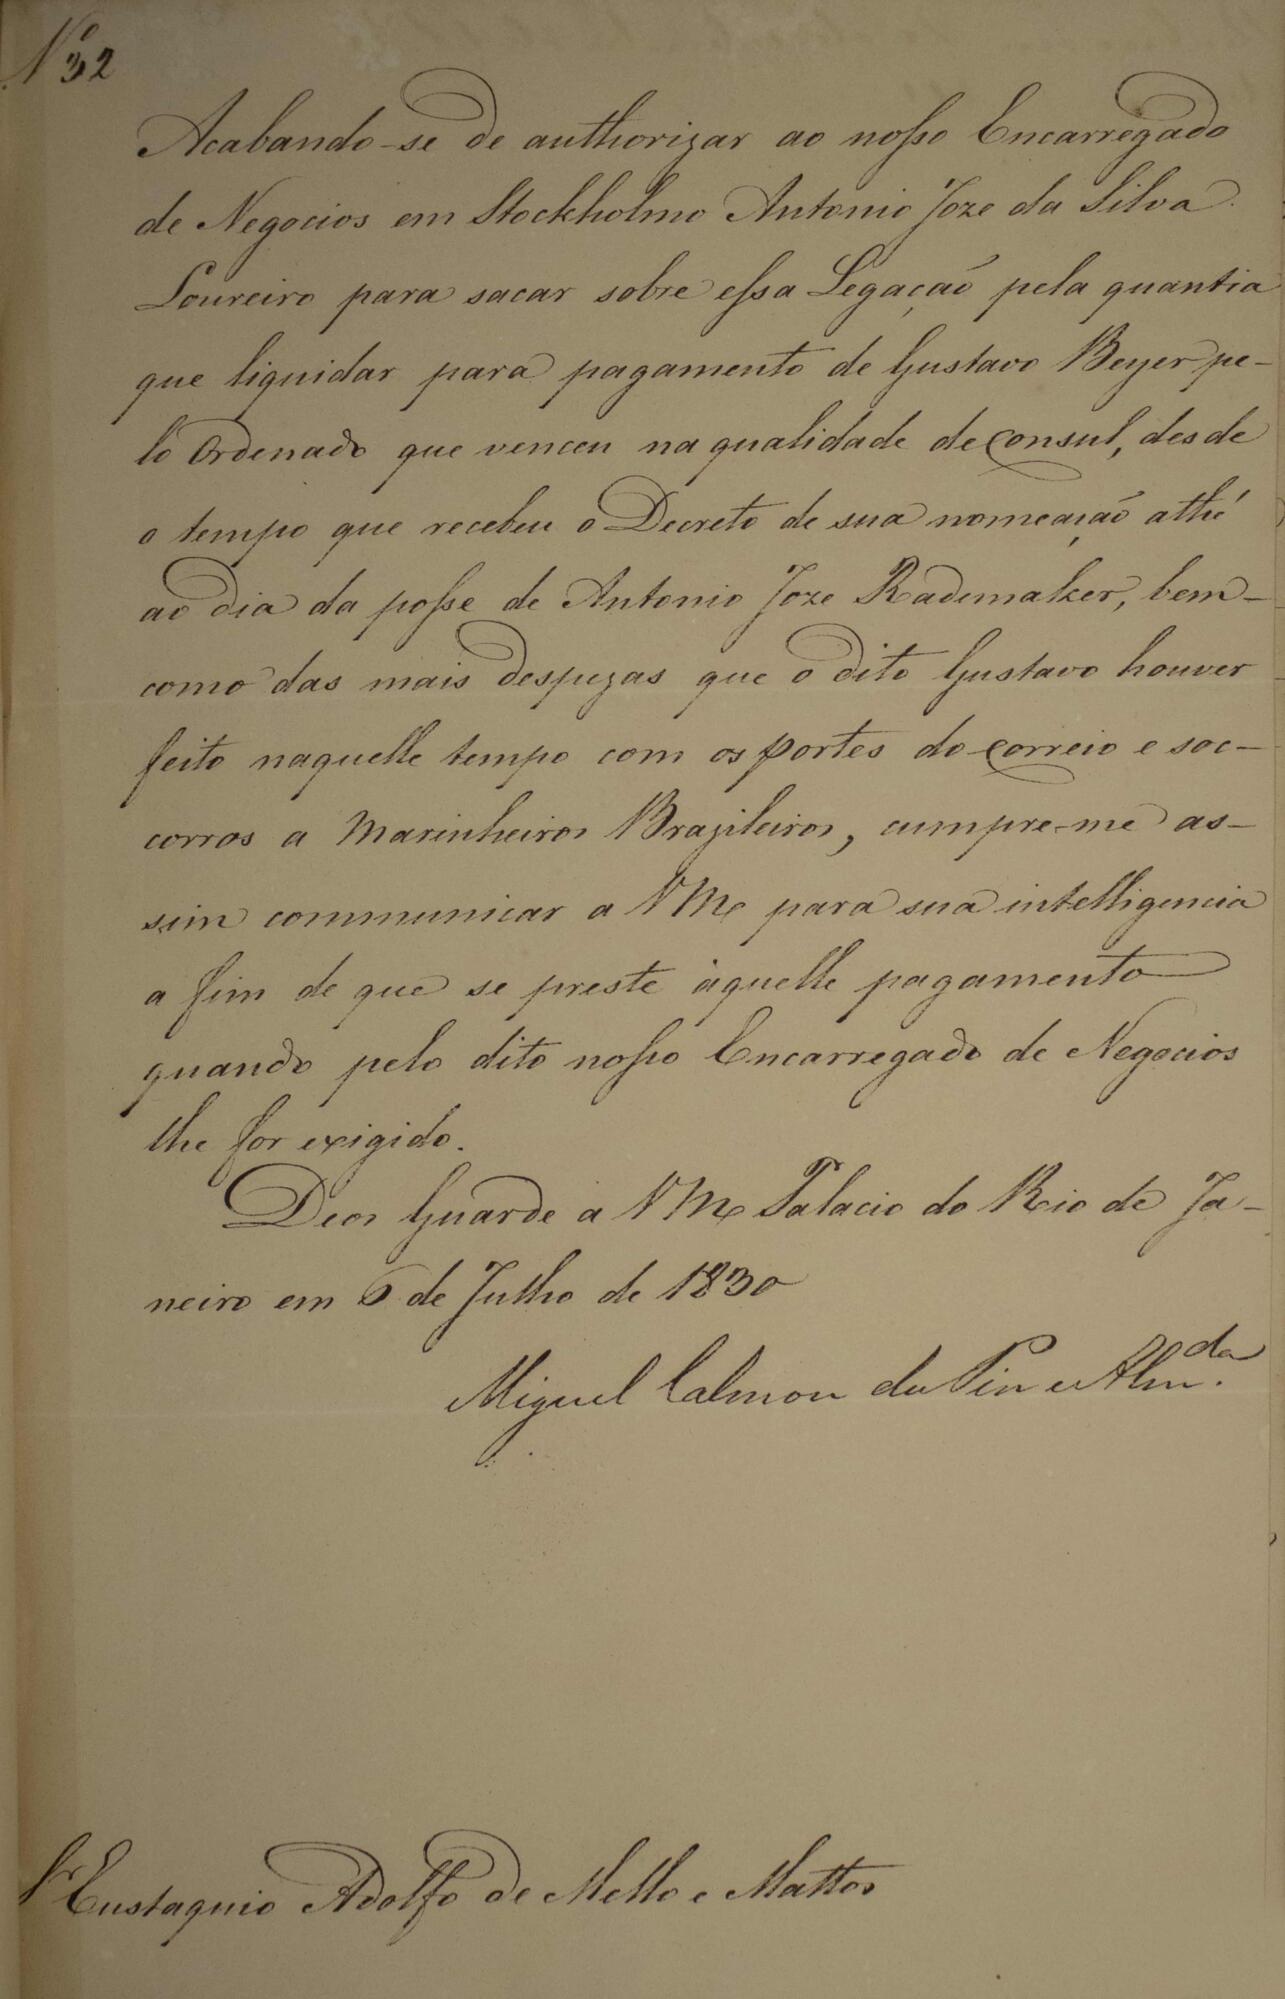 Nº 32
Acabando-se de authorizar ao nosso Encarregado
de Negocios em Stockholmo Antonio Joze da Silva
Loureiro para sacar sobre essa Legação pela quantia
que liquidar para pagamento de Gustavo Beyer pe-
lo Ordenado que venceu na qualidade de Consul, desde
o tempo que recebeu o Decreto de sua nomeação athé
ao dia da posse de Antonio Joze Rademaker, bem-
como das mais despezas que o dito Gustavo houver
feito naquelle tempo com os portes do correio e soc-
corros a Marinheiros Brazileiros, cumpre-me as-
sim communicar a VMce para sua intelligencia
a fim de que se preste àquelle pagamento
quando pelo dito nosso Encarregado de Negocios
lhe for exigido.
Deos Guarde a VMce Palacio do Rio de Ja-
neiro em 6 de Julho de 1830
Miguel Calmon du Pin e Almda.
Sr Eustaquio Adolfo de Mello e Mattos